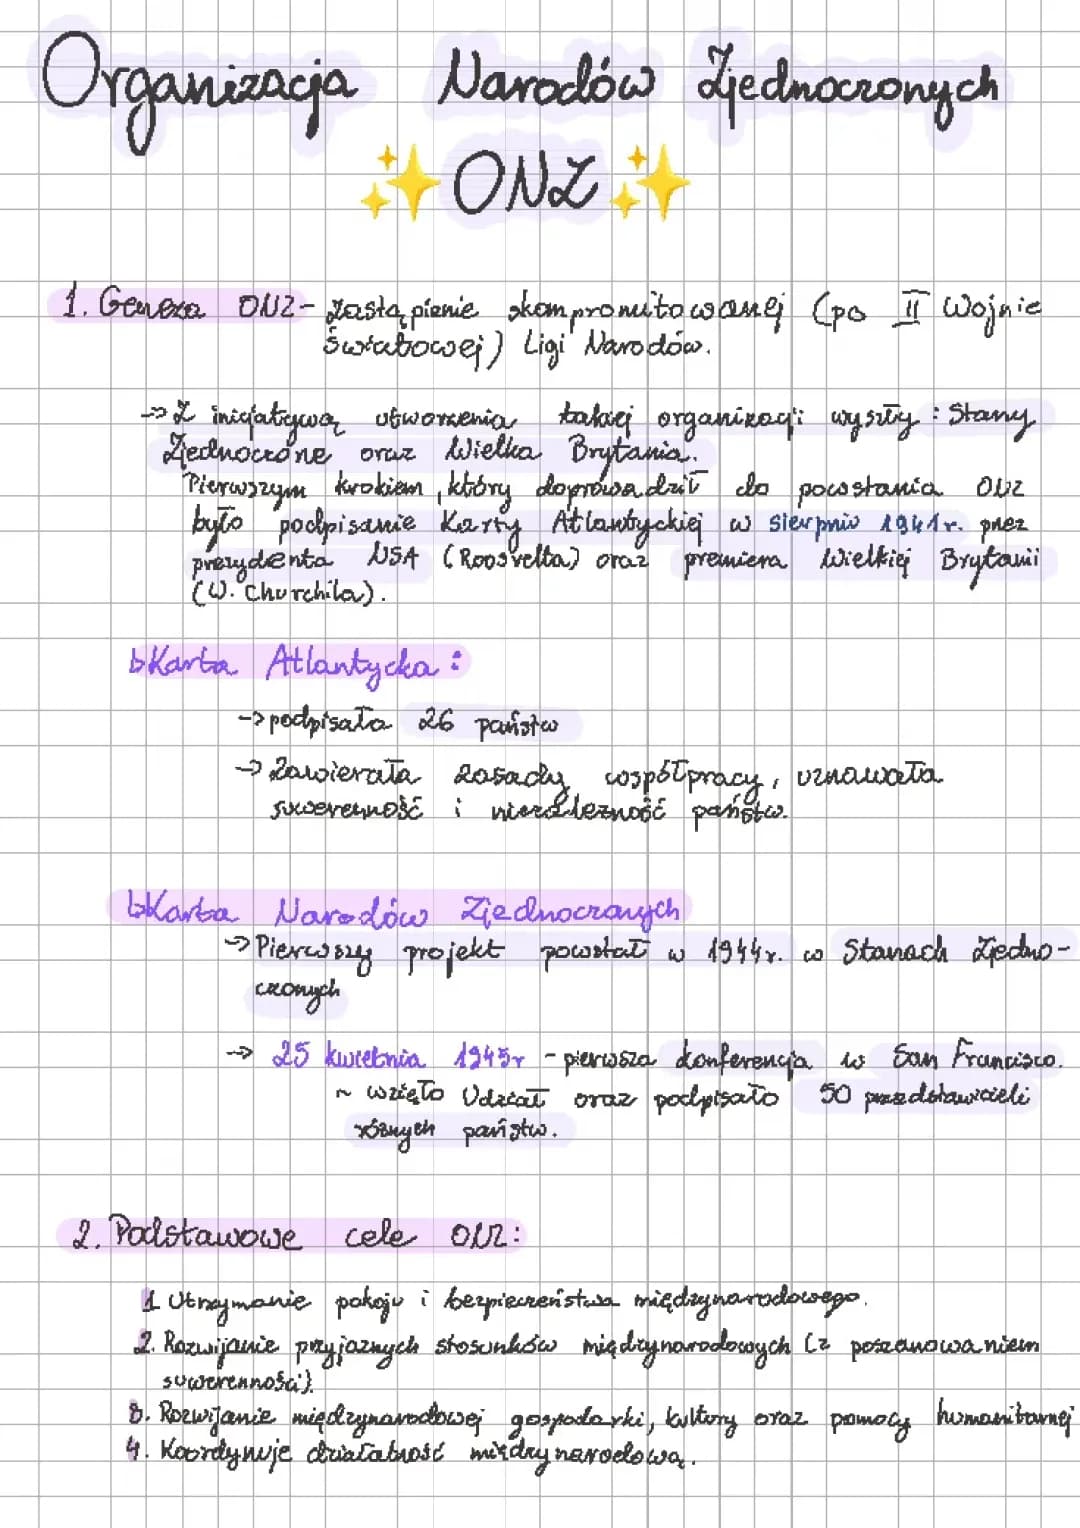 Organizacja Narodów Zjednoczonych
ONZ
1. Geneza ONZ - Zastąpienie skompromitowanej (po II Wojnie
Światowej) Ligi Narodów.
→ Z inicjatywą utworzenia takiej organizacji wyszły : Stany
Zjednoczone oraz Wielka Brytania.
Pierwszym krokiem, który doprowadził do powstania ONZ
było podpisanie Karty Atlantyckiej w sierpniu 1941r. przez
prezydenta USA (Roosvelta) oraz premiera Wielkiej Brytanii
(W. Churchila).
↳ Karta Atlantycka :
→ podpisała 26 państw
→ Zawierała zasady współpracy, uznawała
suwerenność i niezależność państw.
↳ Karta Narodów Zjednoczonych
→ Pierwszy projekt powstał w 1944r. w Stanach Zjedno-
czonych
→ 25 kwietnia 1945r - pierwsza konferencja w San Francisco.
~ wzięło Udział oraz podpisało 50 przedstawicieli
różnych państw.
2. Podstawowe cele ONZ:
1 Utrzymanie pokoju i bezpieczeństwa międzynarodowego.
2. Rozwijanie przyjaznych stosunków międzynarodowych (z poszanowaniem
suwerenności).
3. Rozwijanie międzynarodowej gospodarki, kultury oraz pomocy humanitarnej
4. Koordynuje działalność międzynarodową.